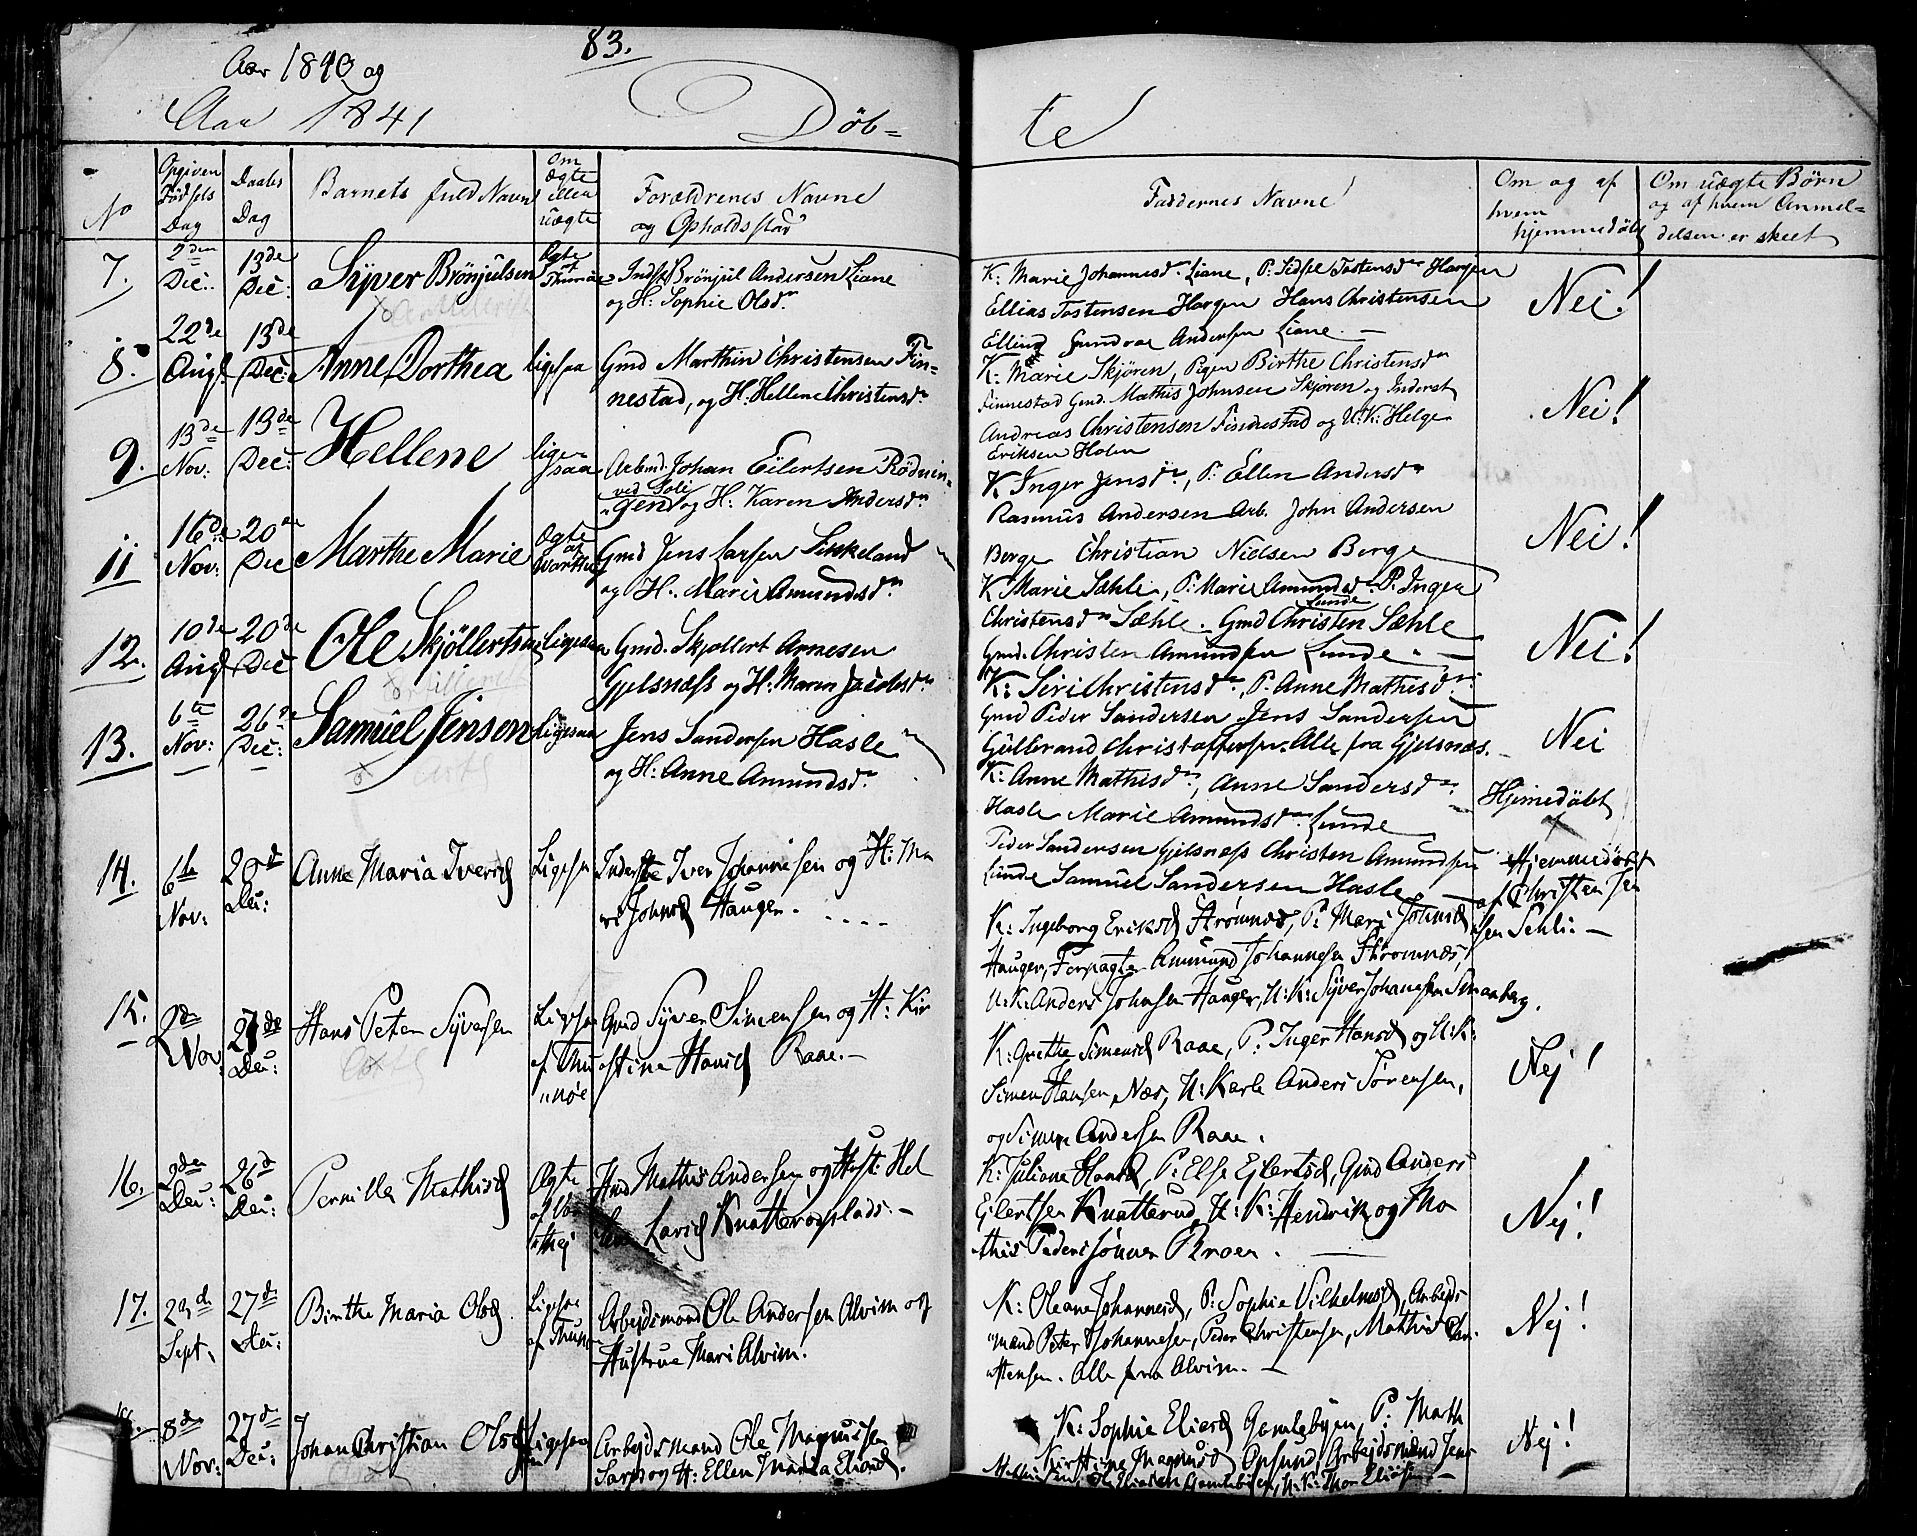 83.
Aar 1840 og
Aar 1841
Døb=
te
No
Opgiven Fødsels Dag
Daabs Dag
Barnets fuld Navn
Om Ægte eller uægte
Forældrenes Navne
og Opholdsstæd
Faddernes Navne
Om og af
hvem
hjemmedöbt
Om uægte Börn
og af hvem Anmel=
delsen er skeet
7.
2den Dec.
13de Dec:
Syver Brönjulsen
Ægte af
Inds. Brönjul Andersen Liane
og H: Sophie Olsdr
K: Marie Johannesdr Liane, P. Sidsel Tostensdr Horgen
Ellias Tostensen Horgen Hans Christensen
Elling Gundroe Andersen Liane. —
Nei!
8.
22de Aug.
13de Dec:
Anne Dorthea
ligesaa
Gmd Marthin Christensen Fin=
nestad, og H: Hellene Christensdr
K: Marie Skjören, Pigen Birthe Christensdr
Finnestad Gmd. Mathis Johnsen Skjören og Inderst
Andreas Christensen Findnestad og U: K: Helge
Eriksen Holen
Nei!
9.
13de Nov:
13de Dec:
Hellene
lige=
saa
Arbmd. Johan Eilertsen Rödnin=
ved Soli
gen og H: Karen Andersdr
K Inger Jensdr, P: Ellen Andersdr
Rasmus Andersen Arb. John Andersen
Berge Christian Nielsen Berge
Nei!
11
16de Nov:
20de Dec
Marthe Marie
Ægte af
Gmd Jens Larsen
og H. Marie Amundsdr
K Marie Sæhle, P: Marie Amundsd P. Inger
Christensdr Sæhle. Gmd Christen Sæhle
Lunde
Gmd. Christen Amundsen Lunde. —
Nei!
12.
10de Aug
20de Dec
Ole Skjöllertsen
ligesaa
Gmd. Skjöllert Arnesen
Gjelsnæss og H: Maren Jacobsdr
K: Siri Christensdr, P. Anne Mathisdr
Gmd Peder Sandersen Jens Sandersen
Gulbrand Christoffersen. Alle fra Gjelsnæs.
Nei
13.
6te Nov:
26de Dec:
Samuel Jensen
ligesaa
Jens Sandersen Hasle
og H: Anne Amundsdr
K: Anne Mathisdr, Anne Sandersdr
Hasle Marie Amundsdr Lunde
Peder Sandersen Gjelsnæss Christen Amundsen
Lunde Samuel Sandersen Hasle —
Hjemedöbt
14.
6te Nov:
20de Dec:
Anne Maria Iversd
Ligesaa
Inderste Iver Johannesen og H: Ma
ri Johnsd Hauger.
K: Ingeborg Eriksd Strömnæs, P: Mari Johnsd
Hauger, Forpagter Ammund Johannesen Strömnæs,
U. K. Anders Johnsen Hauger, U: K: Syver Johannesen
Hjemmedöbt
af Christen Jen
sen Sehli. —
15.
2den Nov:
27de Dec:
Hans Peter Syversen
Ligesaa
af Thu
nöe
Gmd Syver Simensen og H: Kir
stine Hansd Raae. —
K: Grethe Simensd Raae, P. Inger Hansd og U. K:
Simen Hansen Næs, U: Karle Anders Sörensen,
og Simen Andersen Raae.
Nej!
16.
2den Dec:
26de Dec:
Pernille Mathisd
Ægte
Hmd Mathis Andersen og Hust: Hel
Larsd Knatterødplads. —
K: Juliane Hansd, P: Else Ejlertsd, Gmd Anders
Ejlertsen Knatterud, U: K: Hendrik og Ma
this Peders Sønner Broen. —
Nej!
17.
Sept.
27de Dec:
Birthe Maria Olsd
Ligesaa
af Thunöe
Arbejdsmand Ole Andersen Alvim og
Hustrue Mari Alvim.
K: Oleane Johannesd, P: Sophie Vilhelmsd, Arbejds
mænd Peter Johannesen, Peder Christensen, Mathis Chri
stensen. Alle fra Alvim. —
Nej!
18.
8de Nov:
27de Dec:
Johan Christian Olsen
Ligesaa
Arbejdsmand Ole Magnussen
og H: Ellen Maria Eliasd.
K: Sophie Eliesd Gamlebyen, P: Marth
Kirstine Magnusd Opsund, Arbejdsmænd Jens
Gamlebyen, U: K: Thor
Nej!